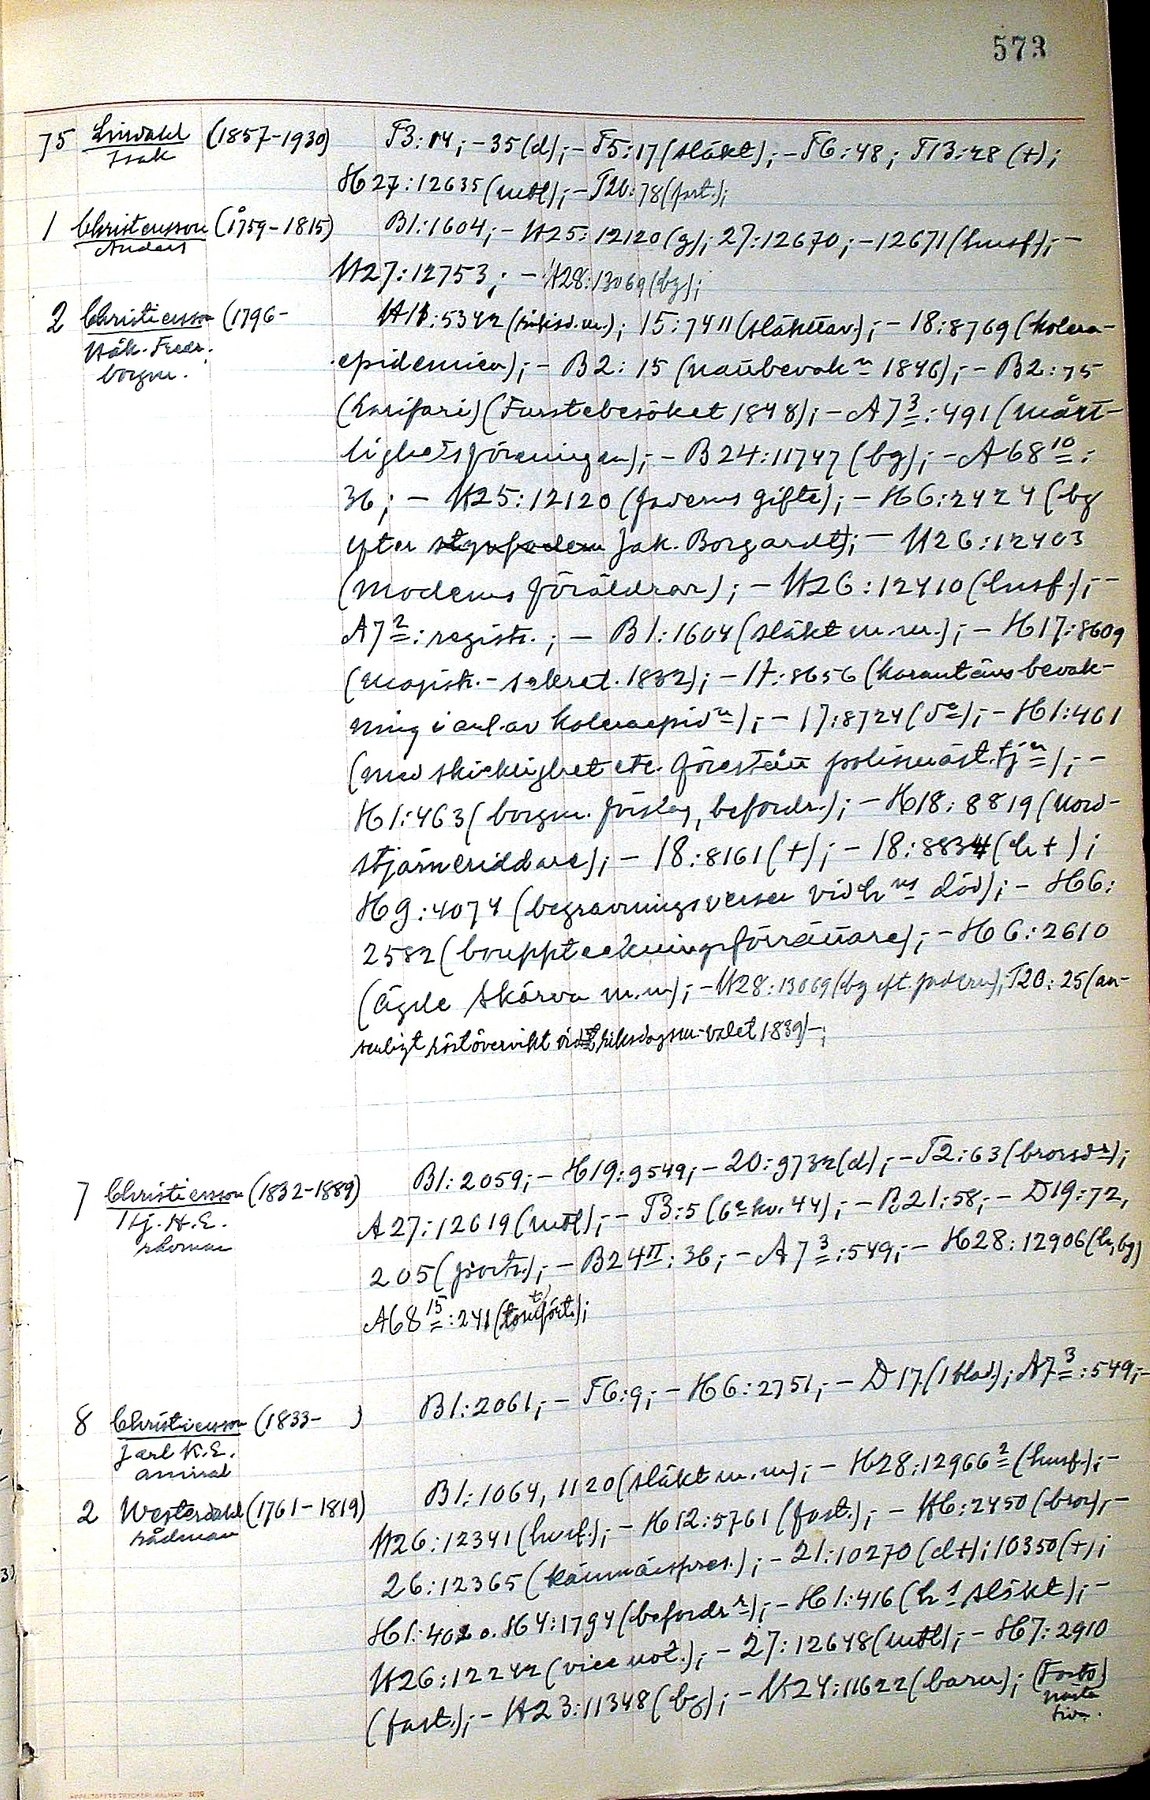 573
75 Lindahl (1857-1930) T3:14; -35(d); - T5:17 (släkt); - T6:48; T13:28 (+);
Isak
H27:12635 (mtl); - T26:78 (fast.);
1 Christensson (1759-1815) B1:1604; - H25:12120 (g); 27:12670; - 12671 (husf); -
Anders
H27:12753; - H28:13069 (bg);
2 Christiernsson (1796- H11:5342; 15:7411 (släkttav.); - 18:8769 (kolera-
Håk. Fredr.
borgm.
epidemien); - B2:15 (1846); - B2:75
(Furstebesöket 1848); - A7 3:491 (mått-
lighetsföreningen); - B24:11747 (bg); - A68 10:
36; - H25:12120 (faderns gifte); - H6:2424 (bg
efter styvfadern Jak. Borgardt); - H26:12403
(Moderns föräldrar); - H26:12410 (husf.); -
A7 2: registr.; - B1:1604 (släkt m.m.); - H17:8609
(Magistr.-sekret. 1832); - 17:8656 (karantänsbevak-
ning i anl. av koleraepid n); - 17:8724 (d o); - H1:461
(med skicklighet etc. förestått polismäst. tj n); -
H1:463 (borgm. förslag, befordr.); - H18:8819 (Nord-
stjärneriddare); - 18:8161 (+); - 18:8834 (h +);
H9:4074 (begravningsverser vid h ns död); - H6:
2582 (bouppteckningsförrättare); - H6:2610
(Ägde Skärva m.m); - H28:13069 (bg eft. fadern); T20:25 (an-
senligt röstövervikt vid riksdagsm-valet 1839) -;
7 Christiernsson (1832-1889) B1:2059; - H19:9549; - 20:9732 (d); - T2:63 (brorsd r);
Hj. H.E.
rådman
A27:12619 (mtl); - T3:5 (6 e kv. 44); - B21:58; - D19:72,
205 (portr.); - B24 II:36; - A7 3:549; - H28:12906 (h, bg)
A68 15:241
8 Christiernsson (1833- ) B1:2061; - T6:9; - H6:2751; - D17 (1 blad); A7 3:549; -
Jarl K.E.
amiral
2 Westerdahl (1761-1819) B1:1064, 1120 (släkt m.m); - H28:12966 2 (husf.); -
rådman
H26:12341 (husf.); - H12:5761 (fast.); - H6:2450 (bror); -
26:12365 (kämnärspres.); - 21:10270 (d+); 10350 (+);
H1:402 o. H4:1794 (befordr r); - H1:416 (h s släkt); -
H26:12242 (vice not.); - 27:12648 (mtl); - H7:2910
(fast.); - H23:11348 (bg); - H24:11622 (barn); (Forts
nästa
sida.)